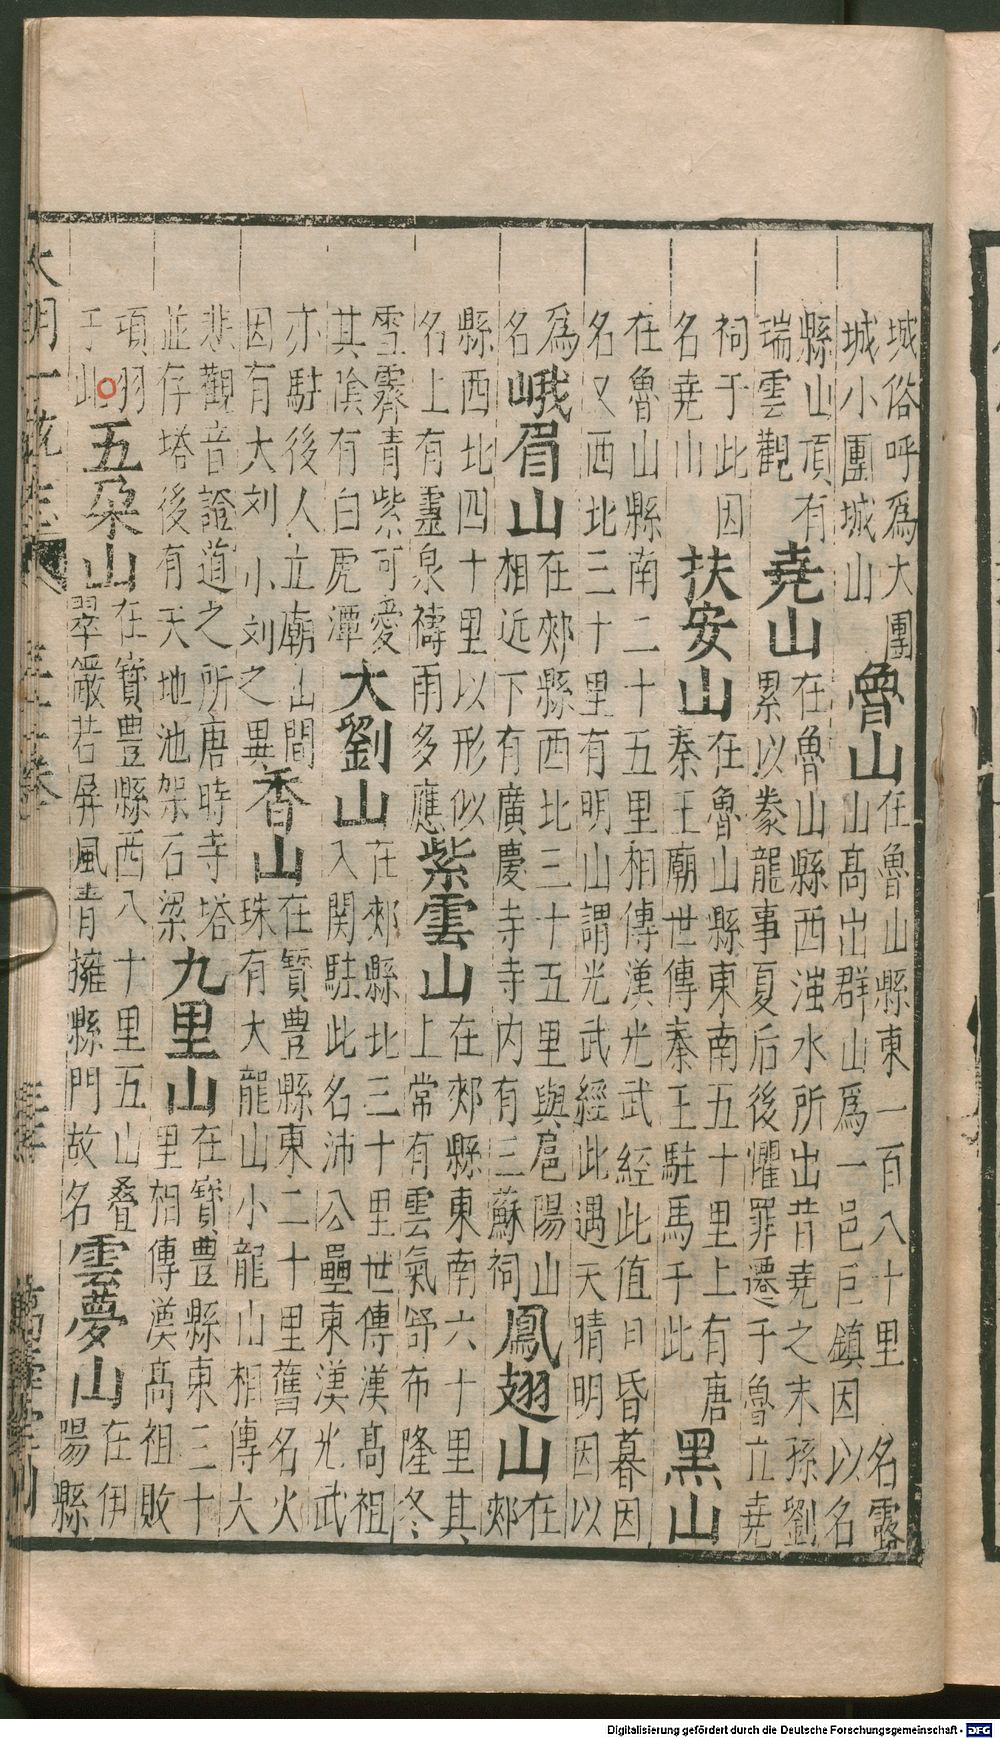 城俗呼爲大團
城小團城山
魯山
在魯山縣東一百八十里名露
山高出群山爲一邑巨鎮因以名
縣山頂有
瑞雲觀
堯山
在魯山縣西滍水所出昔堯之末孫劉
累以豢龍事夏后後懼罪遷于魯立堯
祠于此因
名堯山
扶安山
在魯山縣東南五十里上有唐
秦王廟世傳秦王駐馬于此
黑山
在魯山縣南二十五里相傳漢光武經此值日昏暮因
名又西北三十里有明山謂光武經此遇天晴明因以
爲
名
峨眉山
在郟縣西北三十五里與扈陽山
相近下有廣慶寺寺内有三蘇祠
鳳翅山
在
郟
縣西北四十里以形似
名上有靈泉禱雨多應
紫雲山
在郟縣東南六十里其
上常有雲氣舒布隆冬
雪霽青紫可愛
其陰有白虎潭
大劉山
在郟縣北三十里世傳漢高祖
入関駐此名沛公壘東漢光武
亦駐後人立廟山間
因有大刘小刘之異
香山
在寳豊縣東二十里舊名火
珠有大龍山小龍山相傳大
悲觀音證道之所唐時寺塔
並存塔後有天地池架石梁
九里山
在寳豊縣東三十
里相傳漢高祖敗
項羽
于此
五朵山
在寳豊縣西八十里五山叠
翠巖若屏風青擁縣門故名
雲夢山
在伊
陽縣
大明一統志
萬壽堂刊
Digitalisierung gefördert durch die Deutsche Forschungsgemeinschaft - DFG